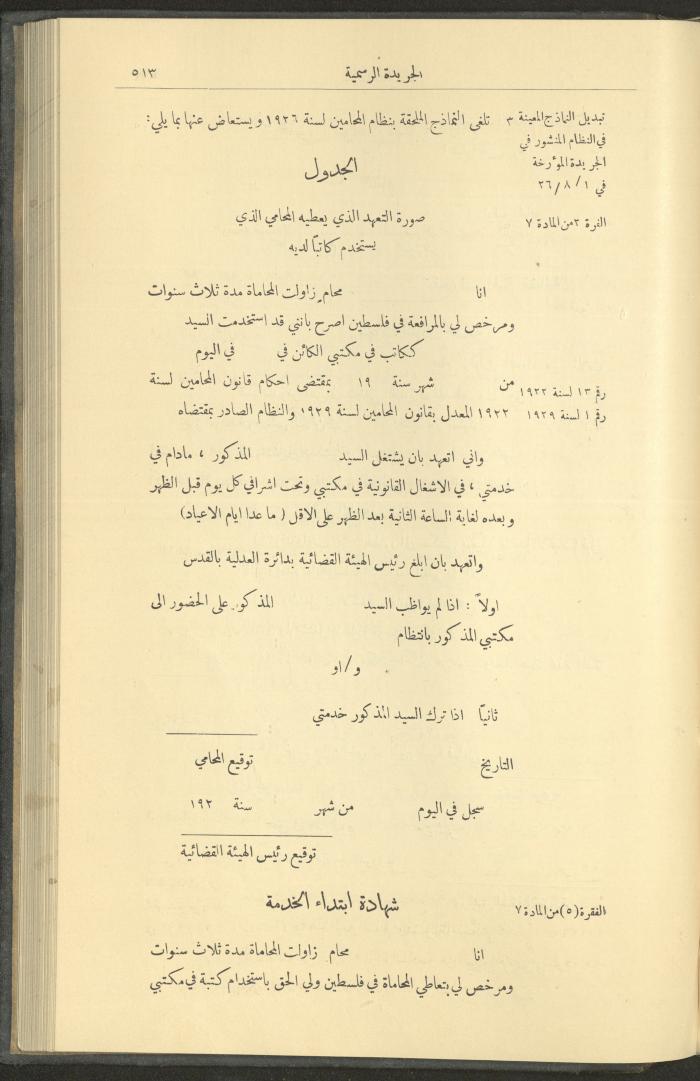 الجريدة الرسمية
٥١٣
تبديل النماذج المعينة
في النظام المنشور في
الجريدة المؤرخة
في ١ / ٨ / ٢٦
٣ تلغى النماذج الملحقة بنظام المحامين لسنة ١٩٢٦ ويستعاض عنها بما يلي :
الجدول
الفرة ٢ من المادة ٧
صورة التعهد الذي يعطيه المحامي الذي
يستخدم كاتباً لديه
انا محام زاولت المحاماة مدة ثلاث سنوات
ومرخص لي بالمرافعة في فلسطين اصرح بانني قد استخدمت السيد
ككاتب في مكتبي الكائن في في اليوم
من شهر سنة ١٩ بمقتضى احكام قانون المحامين لسنة
رقم ١٣ لسنة ١٩٢٢
١٩٢٢ المعدل بقانون المحامين لسنة ١٩٢٩ والنظام الصادر بمقتضاه
رقم ١ لسنة ١٩٢٩
واني اتعهد بان يشتغل السيد المذكور ، مادام في
خدمتي ، في الاشغال القانونية في مكتبي وتحت اشرافي كل يوم قبل الظهر
وبعده لغاية الساعة الثانية بعد الظهر على الاقل ( ما عدا ايام الاعياد )
واتعهد بان ابلغ رئيس الهيئة القضائية بدائرة العدلية بالقدس
اولاً : اذا لم يواظب السيد المذكور على الحضور الى
مكتبي المذكور بانتظام
و / او
ثانياً اذا ترك السيد المذكور خدمتي
التاريخ توقيع المحامي
سجل في اليوم من شهر سنة ١٩٢
توقيع رئيس الهيئة القضائية
الفقرة (٥) من المادة ٧
شهادة ابتداء الخدمة
انا محام زاولت المحاماة مدة ثلاث سنوات
ومرخص لي بتعاطي المحاماة في فلسطين ولي الحق باستخدام كتبة في مكتبي